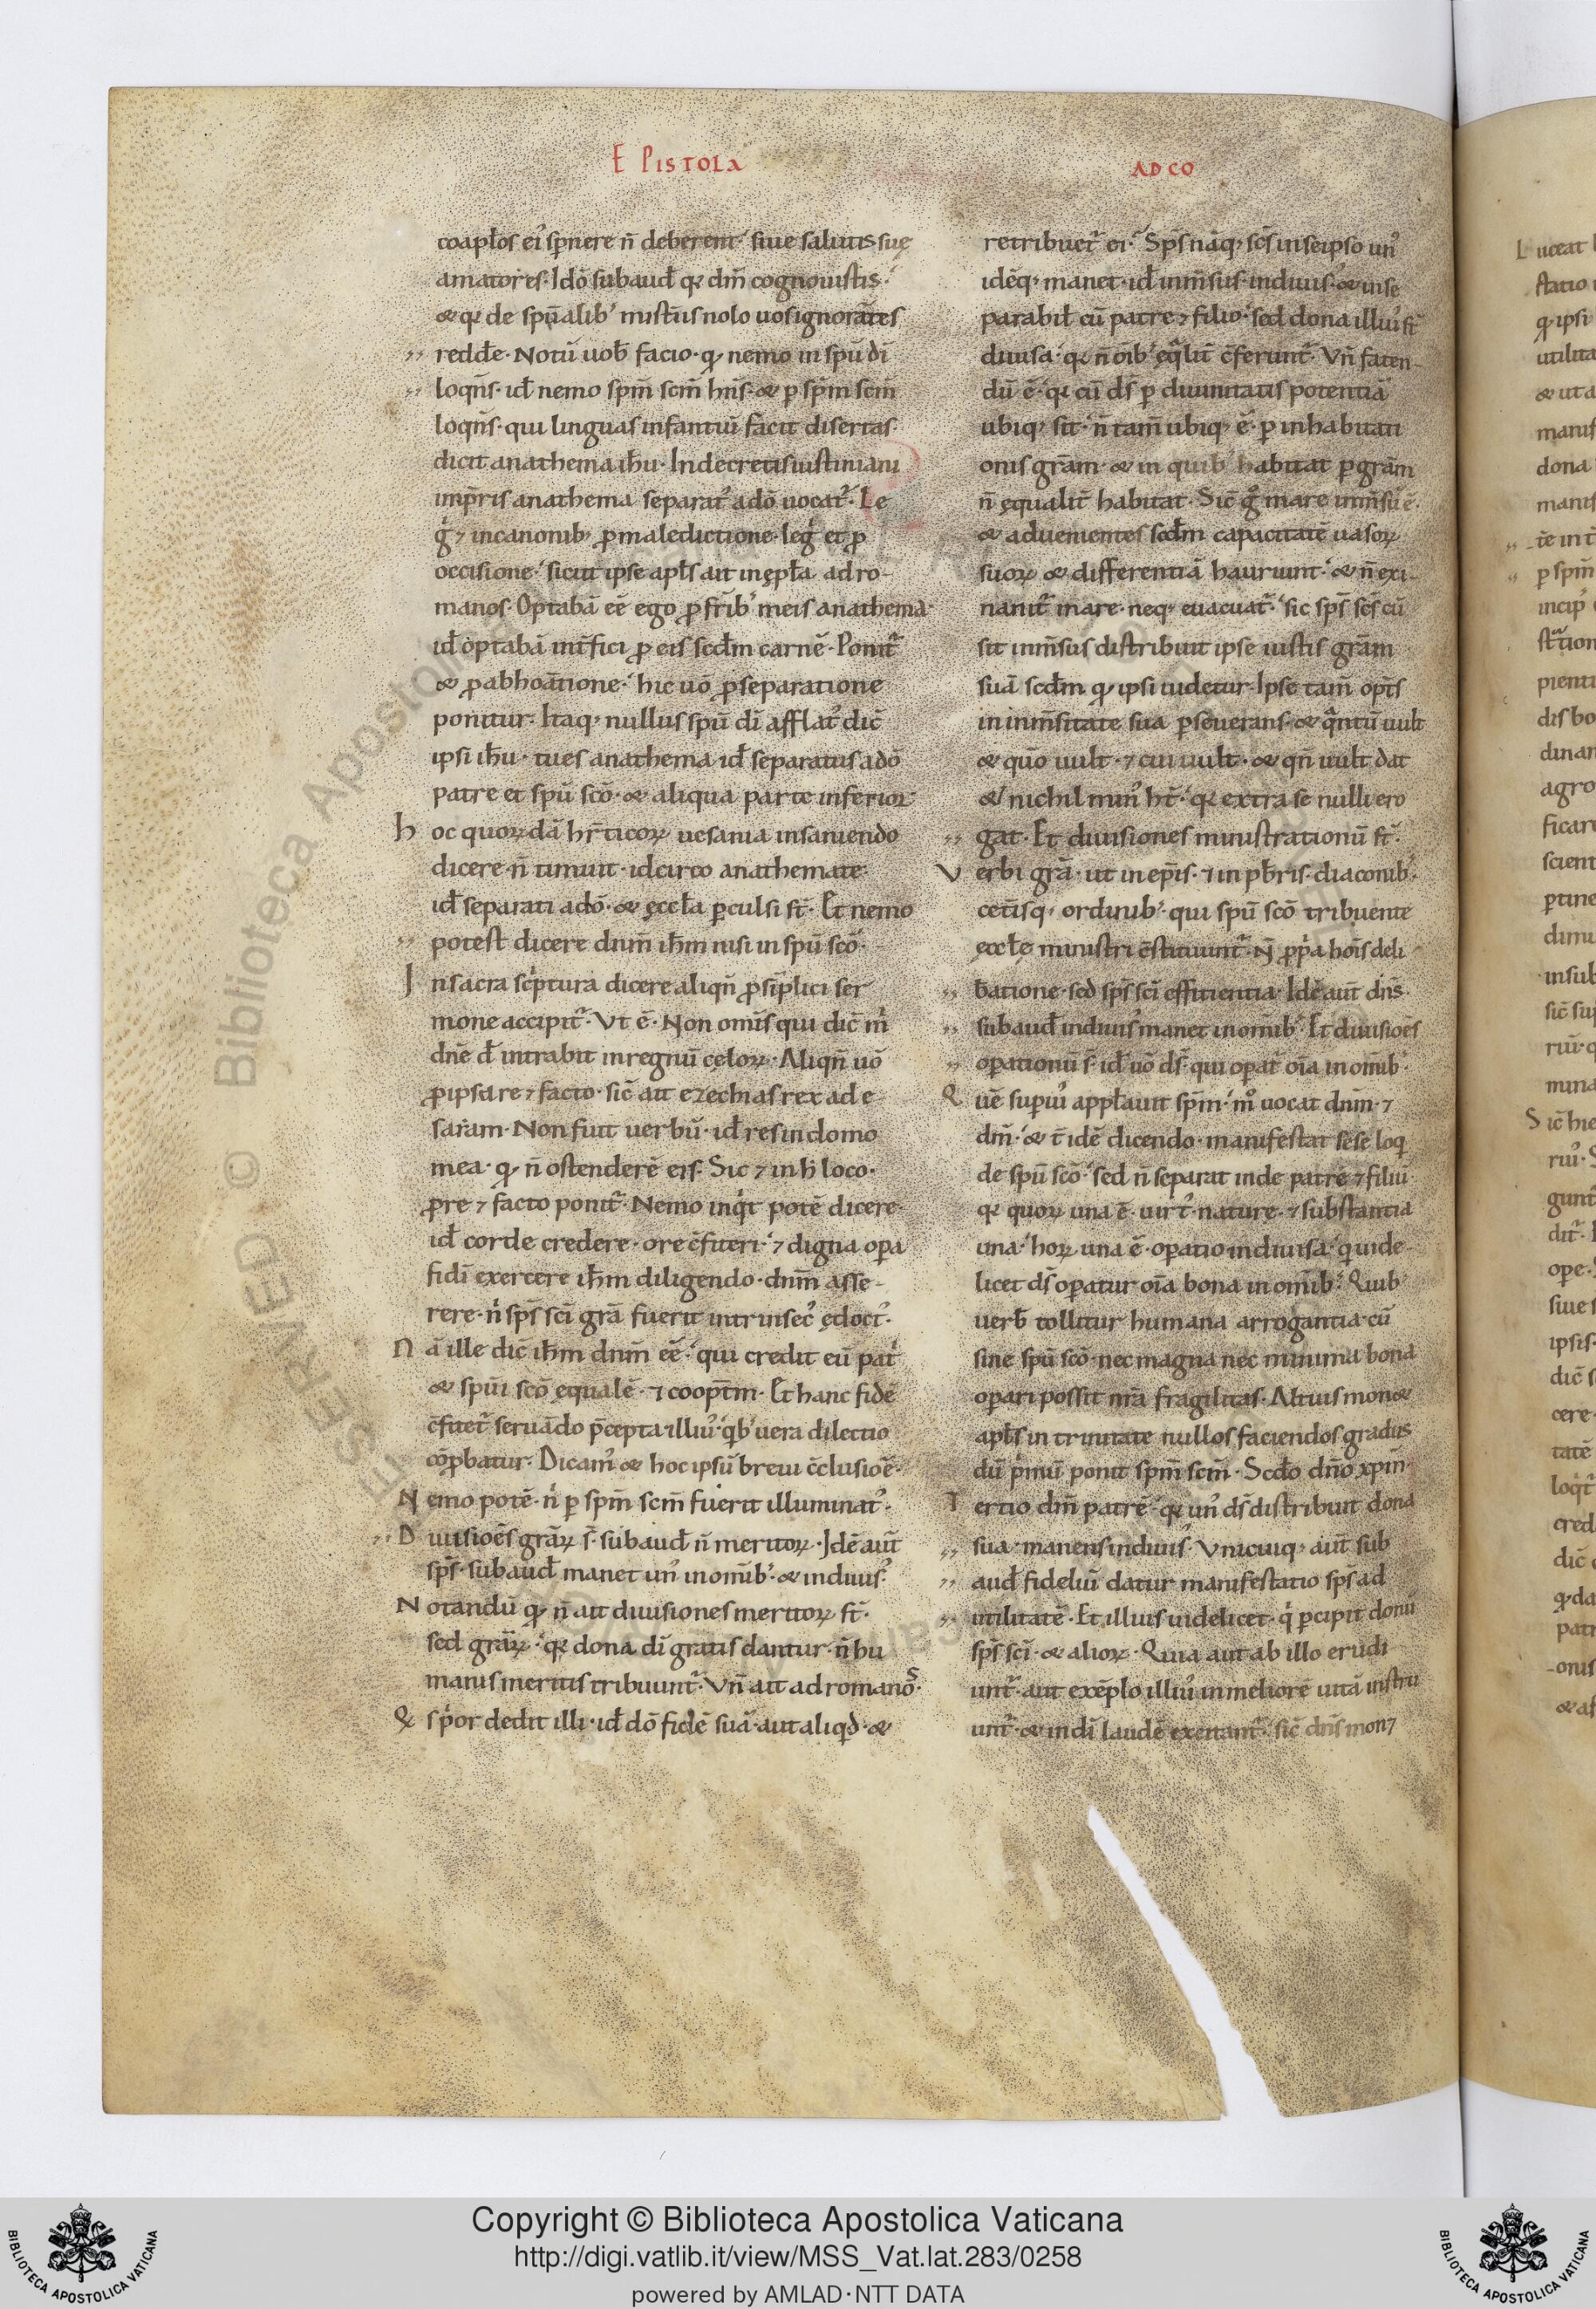 E PISTOLA
AD CO
coapłos ei᾽ sp̄nere n̄ deberent᾽ siue salutis suę
amatores· Idō subaud̄ qr dm̄ cognouistis·
& qr de spūalib᾽ mist̄iis nolo uos ignorātes
redđe· Notū uob̄ facio· q̵ nemo in spū dī
loqn̄s· id̄ nemo spm̄ scm̄ hn̄s· & p spm̄ scm̄
loqn̄s· qui linguas infantiū facit disertas
dicit anathema ih̄u· In decretis iustiniani
imp̄ris anathema separat᾽ adō uocat᾽· Le
g᾽ ⁊ in canonib; p maledictione· leg᾽ et p
occisione᾽ sicut ipse apłs ait in ępła ad ro-
manos· Optabā eē ego p frīb᾽ meis anathema·
id̄ optabā int̄fici p eis scd̄m carnē· Ponit᾽
& p abhoātione·᾽ hic uō p separatione
ponitur· Itaq; nullus spū dī afflat᾽ dic̄
ipsi ih̄u· tu es anathema id̄ separatus adō
patre et spū scō· & aliqua parte inferior
h oc quorꝝdā hr̄ticorꝝ uesania insaniendo
dicere n̄ timuit· idcirco anathemate
id̄ separati adō· & ęccła pculsi st̄· Et nemo
potest dicere dnm̄ ih̄m nisi in spū scō·
I n sacra sc̄ptura dicere aliqn̄ p sīplici ser
mone accipit᾽· Vt ē· Non omīs qui dic̄ m̄
dn̄e d̄ intrabit in regnū cęlorꝝ· Aliqn̄ uō
p ipsa re ⁊ facto· sic̄ ait ezechias rex ad e
saiam· Non fuit uerbū· id̄ res in domo
mea· q̵ n̄ ostenderē eis· Sic ⁊ in h̄ loco·
p re ⁊ facto ponit᾽· Nemo inq̄t potē dicere·
id̄ corde credere· ore c̄fiteri·᾽ ⁊ digna opa
fidī exercere ih̄m diligendo· dnm̄ asse-
rere· n᾽ sps̄ scī grā fuerit intrinsec᾽ ędoct᾽·
N ā ille dic̄ ih̄m dnm̄ eē·᾽ qui credit eū pat᾽
& spūi scō ęqualē· ⁊ coopt̄m· Et hanc fidē
c̄fitet᾽ seruādo p̄cepta illi᾽· q᾽b᾽ uera dilectio
cōpbatur· Dicam᾽ & hoc ipsū breui c̄clusioē·
N emo potē· n᾽ p spm̄ scm̄ fuerit illuminat᾽·
D iuisioēs grārꝝ s̄· subaud̄ n̄ meritorꝝ· Idē aut̄
sps̄· subaud̄ manet un᾽ in omīb᾽· & indiuis᾽·
N otandū q̵ n̄ ait diuisiones meritorꝝ st̄·
sed grārꝝ·᾽ qr dona dī gratis dantur· n̄ hu
manis meritis tribuunt᾽· Vn̄ ait ad romanos·
Q᾽ s p᾽or dedit illi· id̄ dō fidē suā· aut aliq᾽d· &
retribuet᾽ ei·᾽ Sps̄ nāq; scs̄ in seipso un᾽
idēq; manet· id̄ inm̄sus· indiuis᾽· & inse
parabil̄ cū patre ⁊ filio·᾽ sed dona illi᾽ st̄
diuisa· qr n̄ oīb᾽ ęq̄lit̄ c̄ferunt᾽· Vn̄ faten-
dū ē·᾽ qr cū ds̄ p diuinitatis potentiā
ubiq; sit· n̄ tam̄ ubiq; ē· p inhabitati
onis grām· & in quib᾽ habitat p grām
n̄ ęqualit̄ habitat· Sic̄ g᾽ mare inm̄sū ē·
& aduenientes scd̄m capacitatē uasorꝝ
suorꝝ & differentiā hauriunt·᾽ & n̄ exi-
nanit᾽ mare· neq; euacuat᾽·᾽ sic sps̄ scs̄ cū
sit inm̄sus distribuit ipse iustis grām
suā scd̄m q̵ ipsi uidetur· Ipse tam̄ opt̄s
in inm̄sitate sua pseuerans· & q̄ntū uult
& quō uult· ⁊ cui uult· & qn̄ uult dat
& nichil min᾽ ht̄·᾽ qr extra se nulli ero
gat· Et diuisiones ministrationū st̄·
V erbi grā· ut in ep̄is· ⁊ in pb̄ris· diaconib᾽·
cet̄isq; ordinib᾽· qui spū scō tribuente
ęccłę ministri c̄stituunt᾽· N̄ pp᾽a hoīs deli
b̄atione· sed sps̄ scī effitientia· Idē aut̄ dn̄s·
subaud̄ indiuis᾽ manet in omīb᾽· Et diuisioēs
opationū s̄· id̄ uō ds̄· qui opat᾽ oīa in omīb᾽·
Q uē supi᾽ appłauit spm̄·᾽ m᾽ uocat dnm̄· ⁊
dm̄·᾽ & t̄ idē dicendo· manifestat sese loq᾽
de spū scō·᾽ sed n̄ separat inde patrē ⁊ filiū·
qr quorꝝ una ē· uirt᾽· naturę· ⁊ substantia
una·᾽ horꝝ una ē· opatio indiuisa· quide
licet ds̄ opatur oīa bona in omīb᾽· Quib᾽
uerb̄ tollitur humana arrogantia· cū
sine spū scō· nec magna nec minima bona
opari possit nr̄a fragilitas· Altius mon&
apłs in trinitate nullos faciendos gradus
dū p᾽mū ponit spm̄ scm̄· Scd̄o dn̄o xpm̄·
T ertio dm̄ patrē·᾽ qr un᾽ ds̄ distribuit dona
sua· manens indiuis᾽· Vnicuiq; aut̄ sub
aud̄ fideliū datur manifestatio sps̄ ad
utilitatē· Et illius uidelicet· q᾽ pcipit donū
sps̄ scī· & aliorꝝ· Quia aut ab illo erudi
unt᾽· aut exēplo illi᾽ in meliorē uitā instru
unt᾽· & in dī laudē excitant᾽·᾽ sic̄ dn̄s mon⁊
Copyright © Biblioteca Apostolica Vaticana
http://digi.vatlib.it/view/MSS_Vat.lat.283/0258
powered by AMLAD·NTT DATA